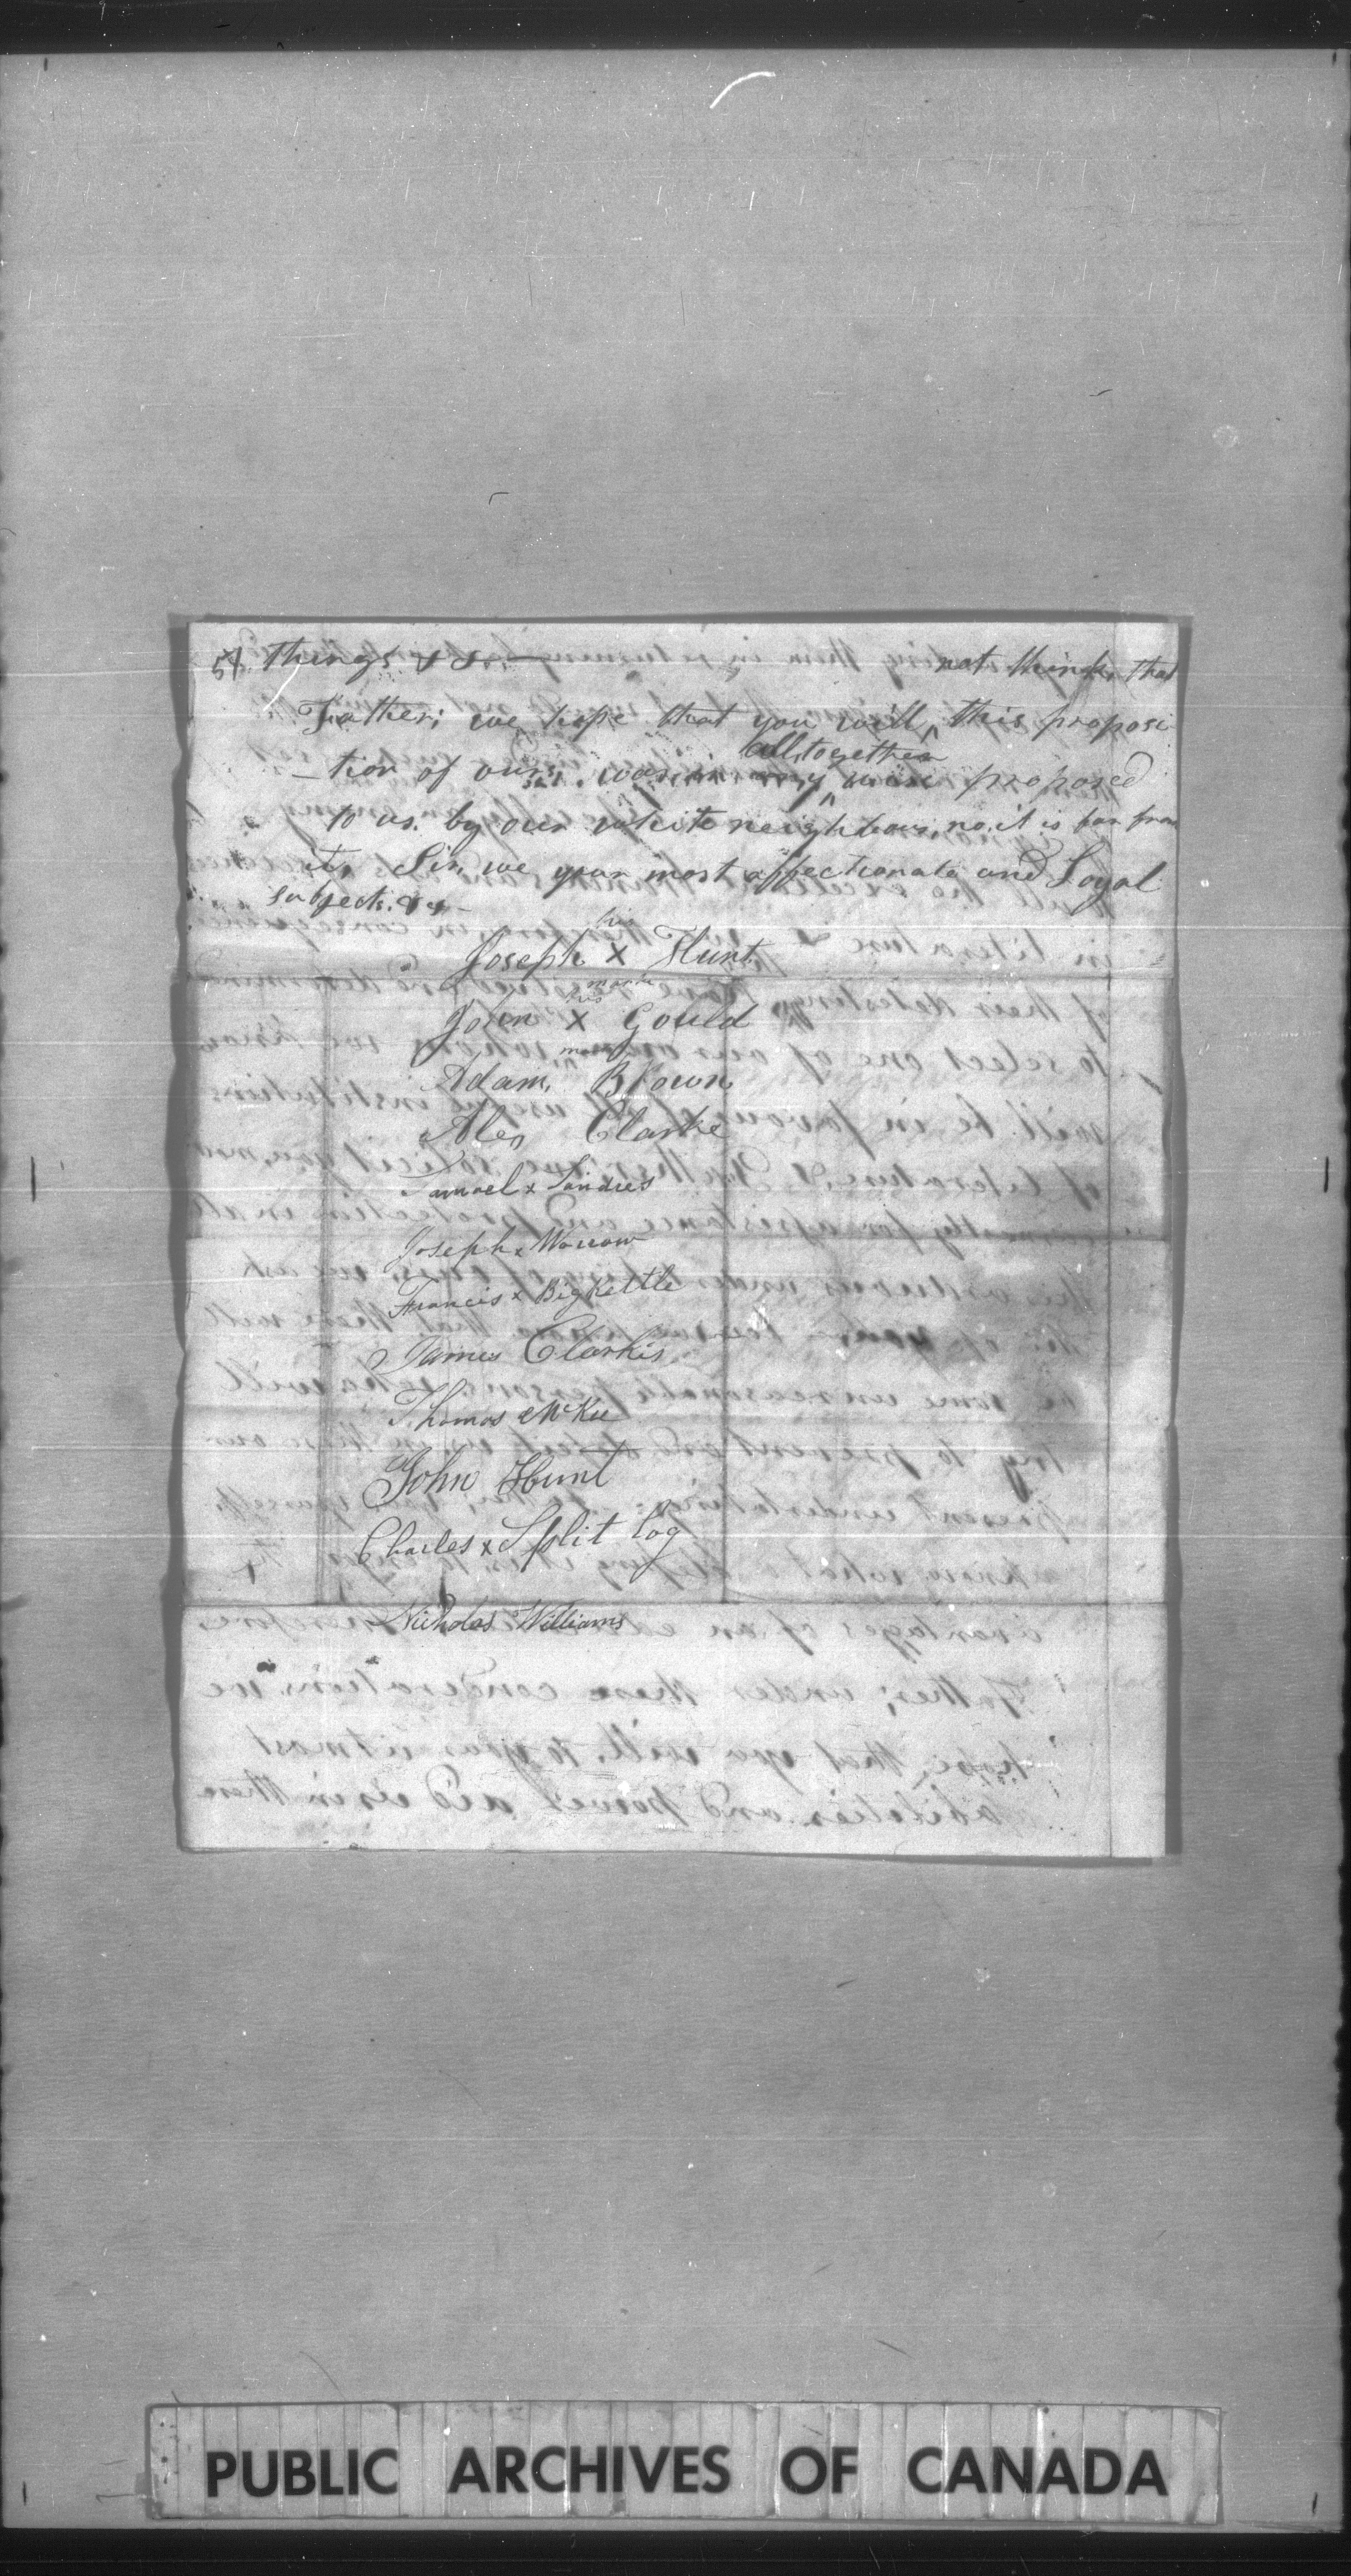 5) things &c. —
not think, that
Father; we hope that you will ^ this proposi
all, together
-tion of ours, was, in ^ proposed
to us. by our white neighbours, no. it is far from
it, Sir, we your most affectionate and Loyal
subjects. &c -
his
Joseph x Hunt
mark
his
John x Gould
mark
Adam, Brown
Alex Clarke
Samuel x Sandres
Joseph x Warrow
Francis x Big Kettle
James Clarkis
Thomas McKee
John Hunt
Charles x Split log
Nicholas Williams
PUBLIC ARCHIVES OF CANADA